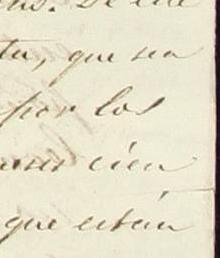 De este
que sea
por los
cien
que están